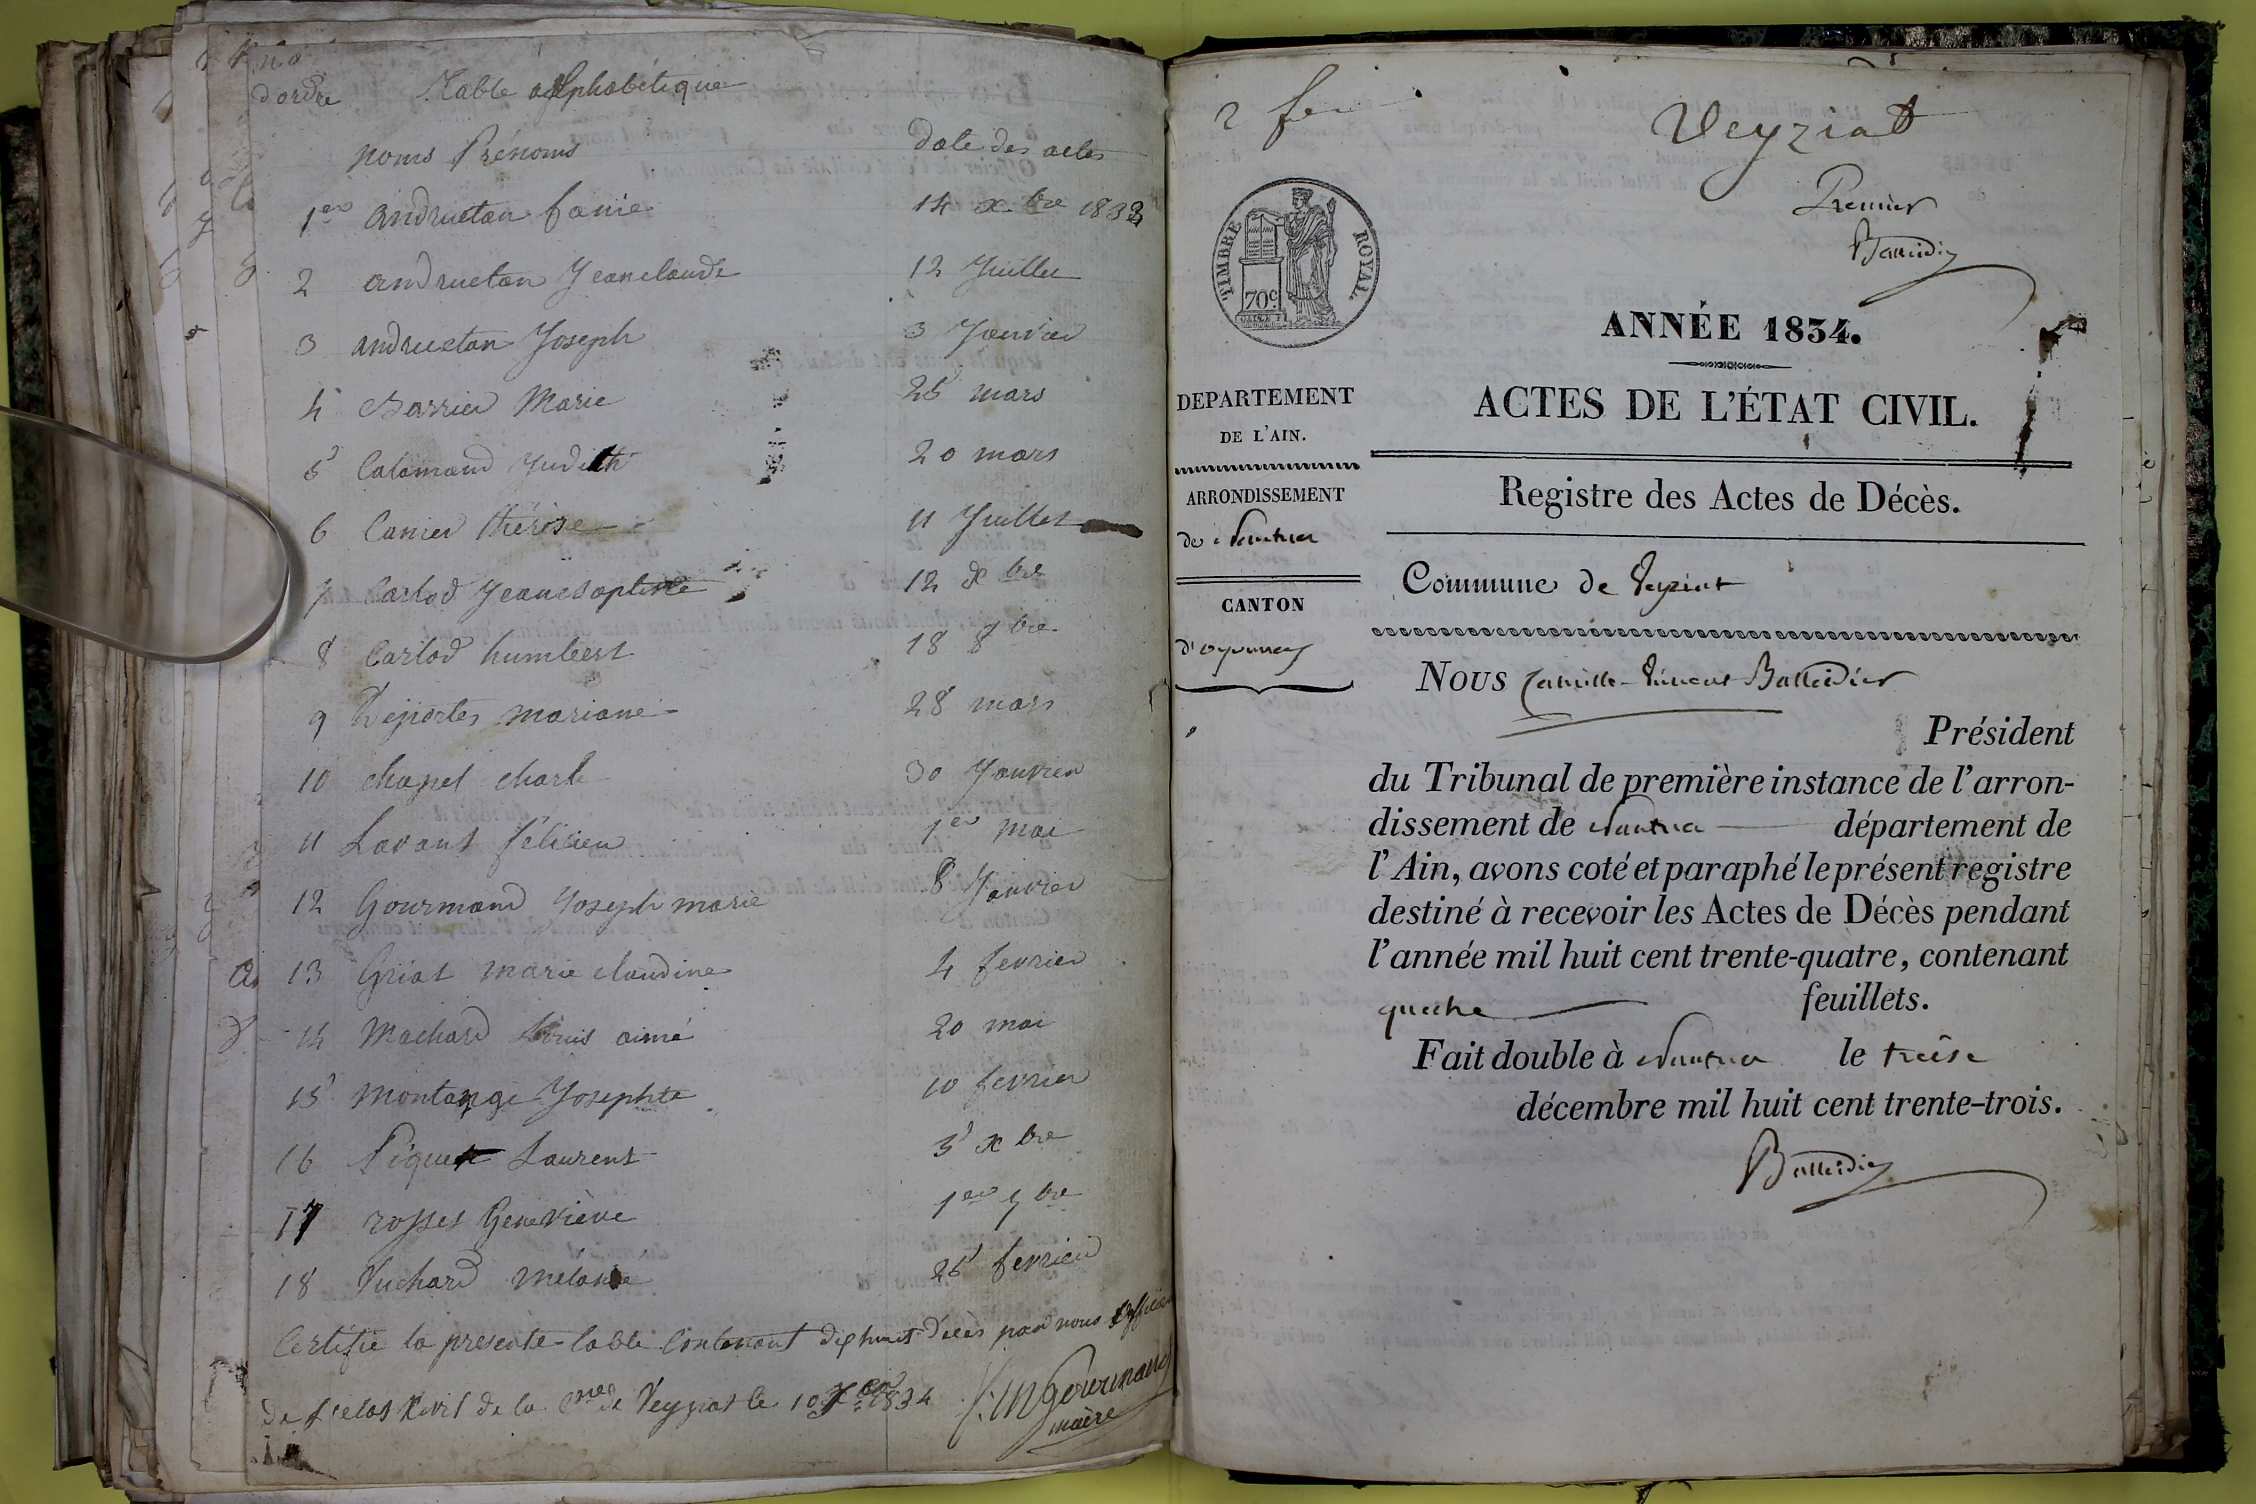 no
d'ordre
Table alphabétique
noms Prénoms
date des actes
1er andruetan fanie 14 xbre 1833
2 andruetan Jeanclaude 12 Juillet
3 andruetan Joseph 3 Janvier
4 Barrier Marie 25 mars
5 Calamand Judith 20 mars
6 Canier thérèse 11 Juillet
7 Carlod Jeanbaptiste 12 xbre
8 Carlod humbert 18 8bre
9 Deportes mariane 28 mars
10 chapel charle 30 Janvier
11 Lavant félicien 1er mai
12 Gourmand Joseph marie 8 Janvier
13 Griat marie claudine 4 fevrier
14 Machard Louis aimé 20 mai
15 Montange Josephte 10 fevrier
16 Piquet Laurent 5 xbre
17 rosset Geneviève 1er 7bre
18 Tuchard mélanie 25 fevrier
Certifie la presente table Contenant dix huit décès par nous officier
de l'etat Civil de la Cne de Veyziat le 10 1834
J. M Gourmand
maère
2 feu
Veyziat
Premier
Balleidier
TIMBRE ROYAL
70c
ANNÉE 1834.
ACTES DE L'ÉTAT CIVIL.
DEPARTEMENT
DE L'AIN.
ARRONDISSEMENT
de Nantua
CANTON
d'oyonnax
Registre des Actes de Décès.
Commune de Veyziat
Nous Camille-Vincent Balleidier
Président
du Tribunal de première instance de l'arron-
dissement de Nantua département de
l'Ain, avons coté et paraphé le présent registre
destiné à recevoir les Actes de Décès pendant
l'année mil huit cent trente-quatre, contenant
quatre feuillets.
Fait double à Nantua le treise
décembre mil huit cent trente-trois.
Balleidier